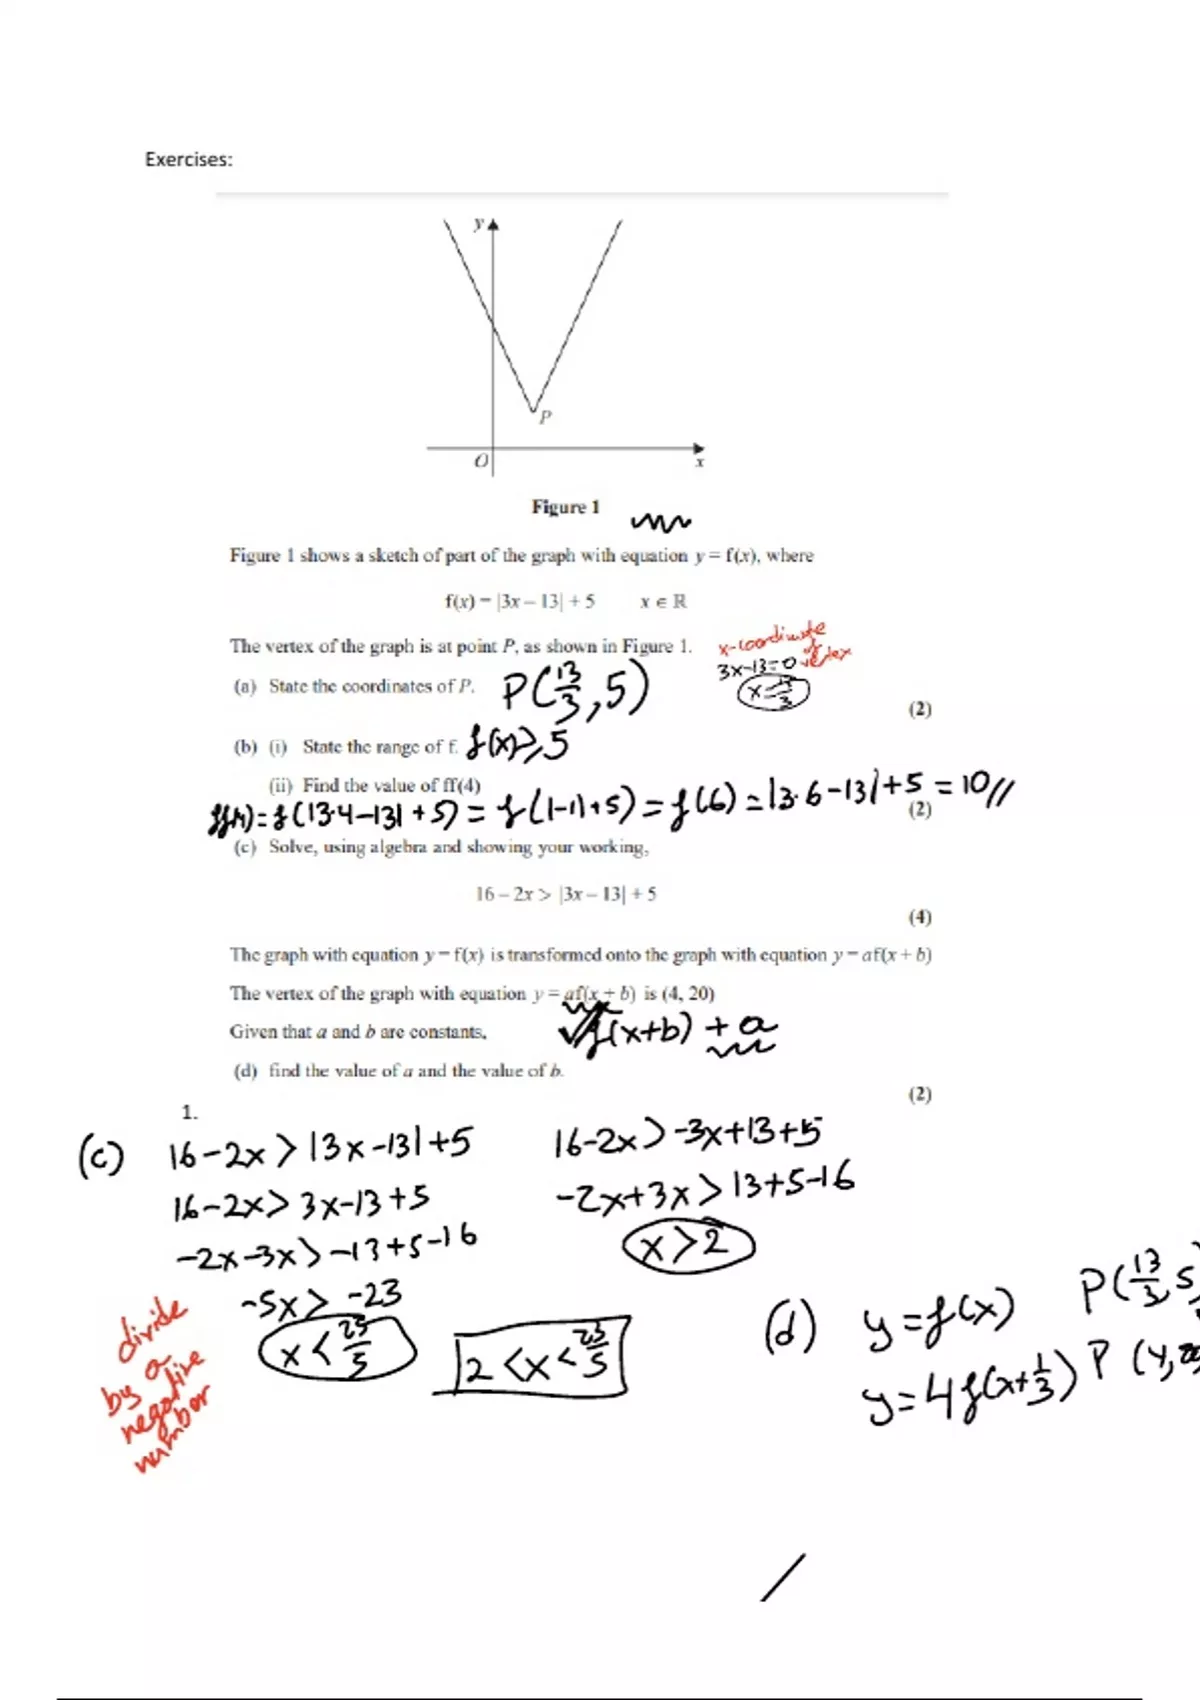 Exercises:
y
P
O
x
Figure 1
Figure 1 shows a sketch of part of the graph with equation y = f(x), where
f(x) = |3x – 13| + 5 x ∈ ℝ
The vertex of the graph is at point P, as shown in Figure 1.
x-coordinate of vertex
3x-13=0
x=13/3
(a) State the coordinates of P. P(13/3,5)
(2)
(b) (i) State the range of f. f(x)≥5
(ii) Find the value of ff(4)
ff(4)=f(|3·4-13|+5)=f(|-1|+5)=f(6)=|3·6-13|+5=10//
(2)
(c) Solve, using algebra and showing your working,
16 – 2x > |3x – 13| + 5
(4)
The graph with equation y = f(x) is transformed onto the graph with equation y = af(x + b)
The vertex of the graph with equation y = af(x + b) is (4, 20)
Given that a and b are constants,
f(x+b) + a
(d) find the value of a and the value of b.
(2)
1.
(c) 16-2x>|3x-13|+5
16-2x>3x-13+5
-2x-3x>-13+5-16
-5x>-23
divide by a negative number
x<23/5
16-2x>-3x+13+5
-2x+3x>13+5-16
x>2
2<x<23/5
(d) y=f(x) P(13/3,5
y=4f(x+1/3) P(4,20